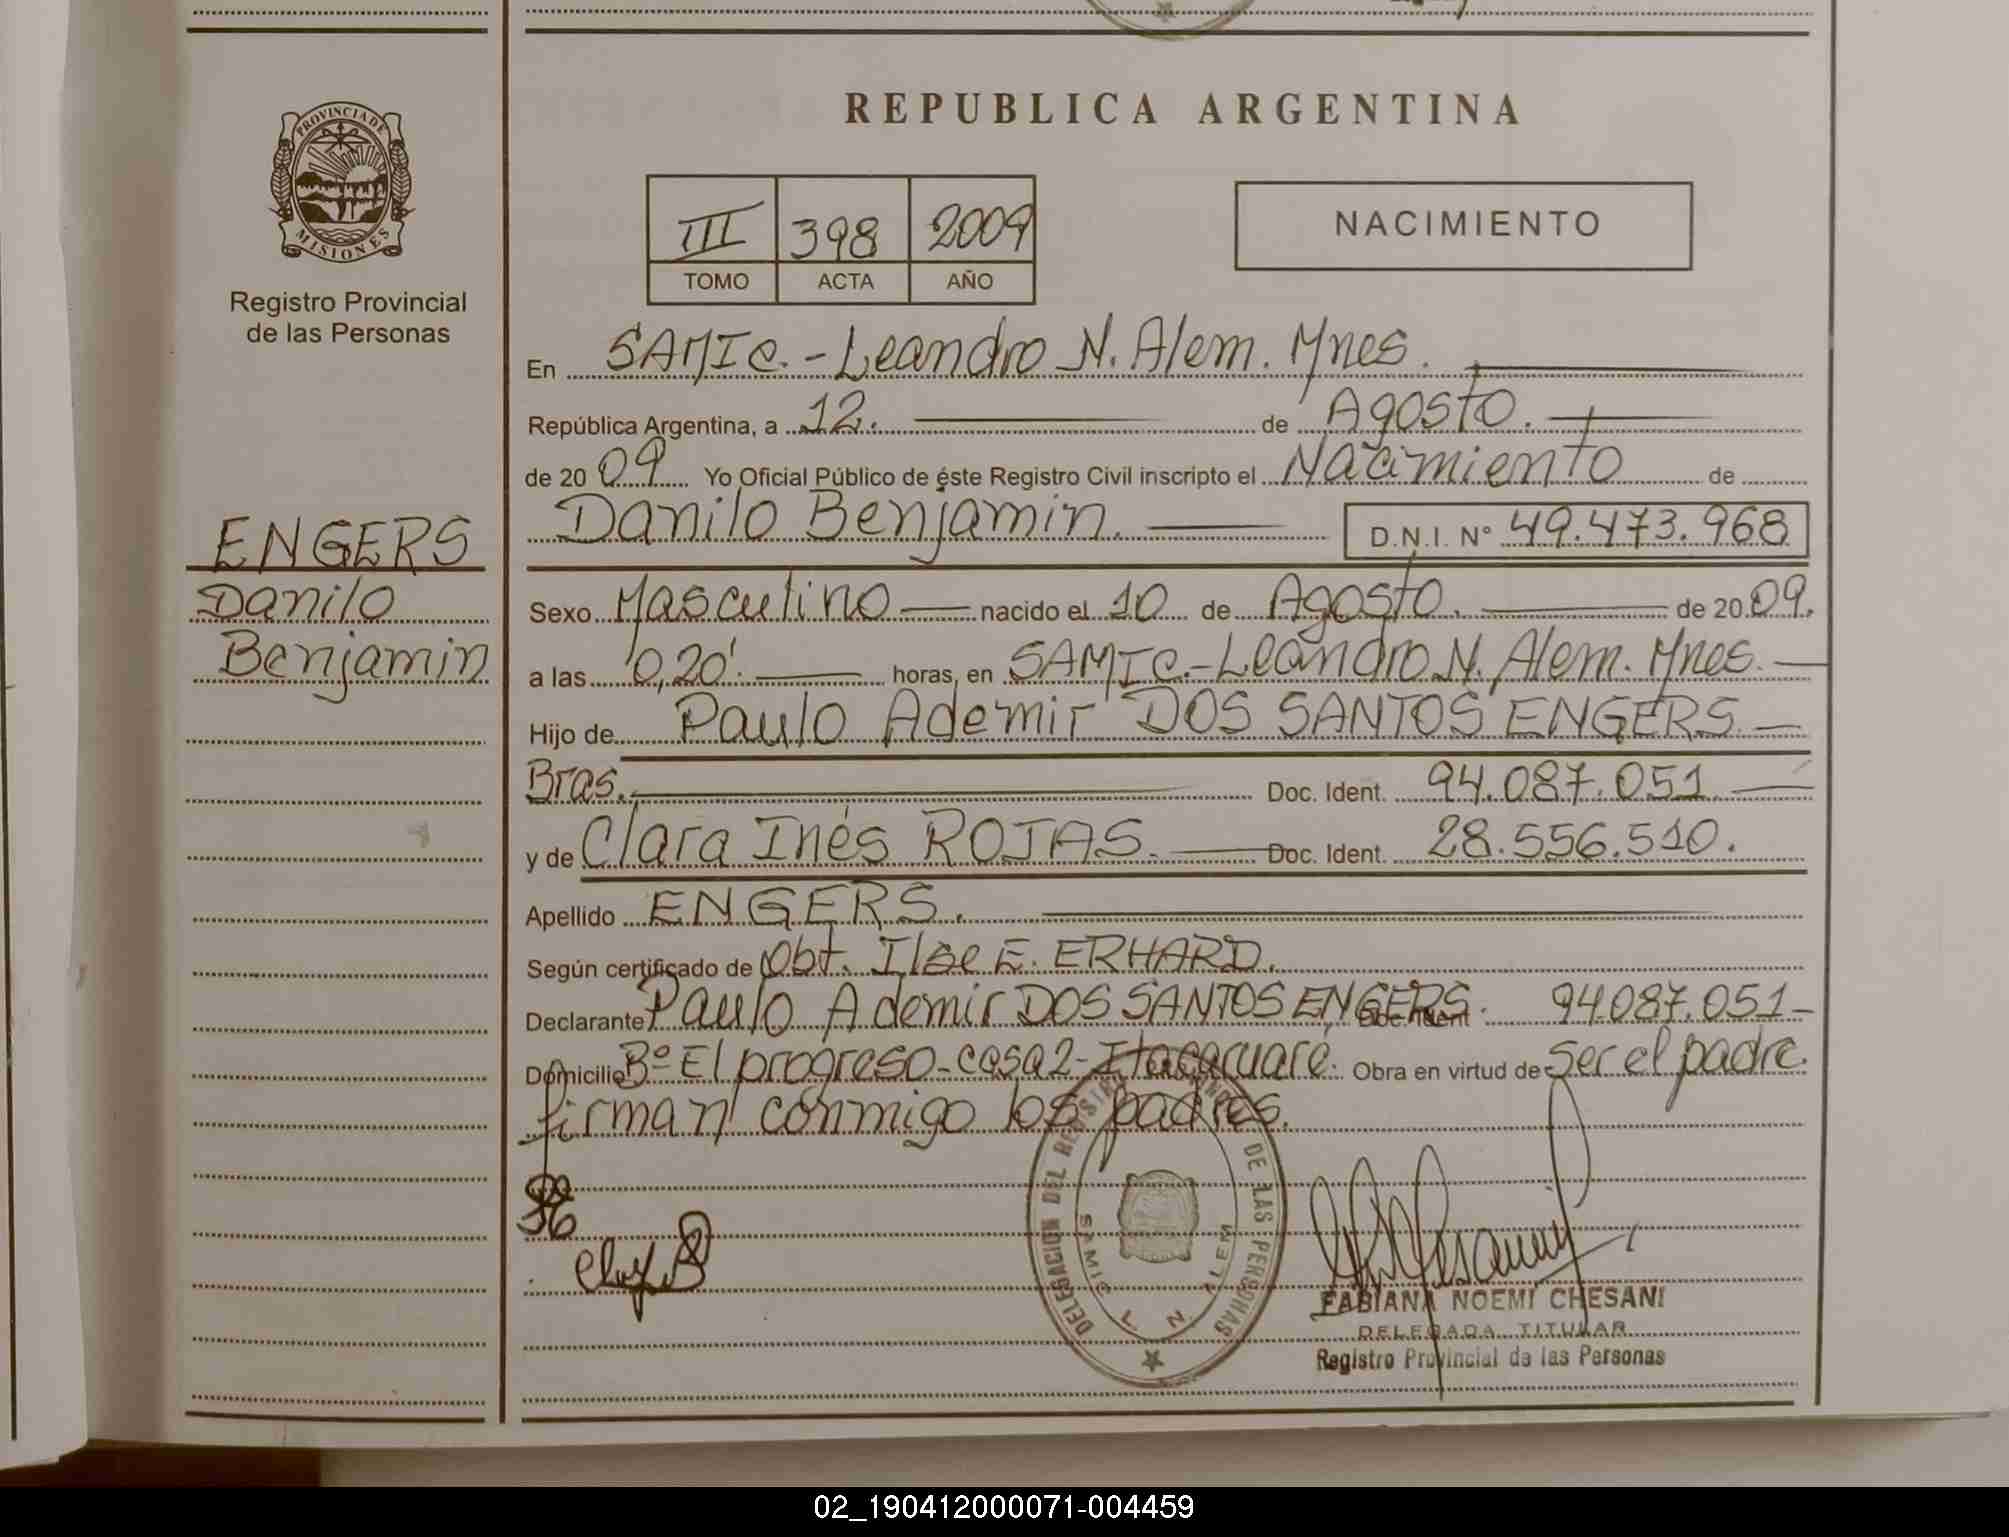 PROVINCIA DE
MISIONES
Registro Provincial
de las Personas
ENGERS
Danilo
Benjamin
REPUBLICA ARGENTINA
III 398 2009
TOMO ACTA AÑO
NACIMIENTO
En SAMIC.-Leandro N. Alem. Mnes.
República Argentina, a 12. de Agosto.
de 2009 Yo Oficial Público de éste Registro Civil inscripto el Nacimiento de
Danilo Benjamin. D.N.I. Nº 49.473.968
Sexo Masculino nacido el 10 de Agosto. de 2009.
a las 0,20'. horas, en SAMIC.-Leandro N. Alem. Mnes.
Hijo de Paulo Ademir DOS SANTOS ENGERS.
Bras. Doc. Ident. 94.087.051
y de Clara Inés ROJAS. Doc. Ident. 28.556.510.
Apellido ENGERS.
Según certificado de Obt. Ilse E. ERHARD.
Declarante Paulo Ademir DOS SANTOS ENGERS. Doc. Ident. 94.087.051-
Domicilio Bº El progreso-casa 2-Itacaruaré. Obra en virtud de ser el padre.
firman conmigo los padres.
DELEGACION DEL REGISTRO DE LAS PERSONAS
SAMIC L. N. ALEM
FABIANA NOEMI CHESANI
DELEGADA TITULAR
Registro Provincial de las Personas
02_190412000071-004459